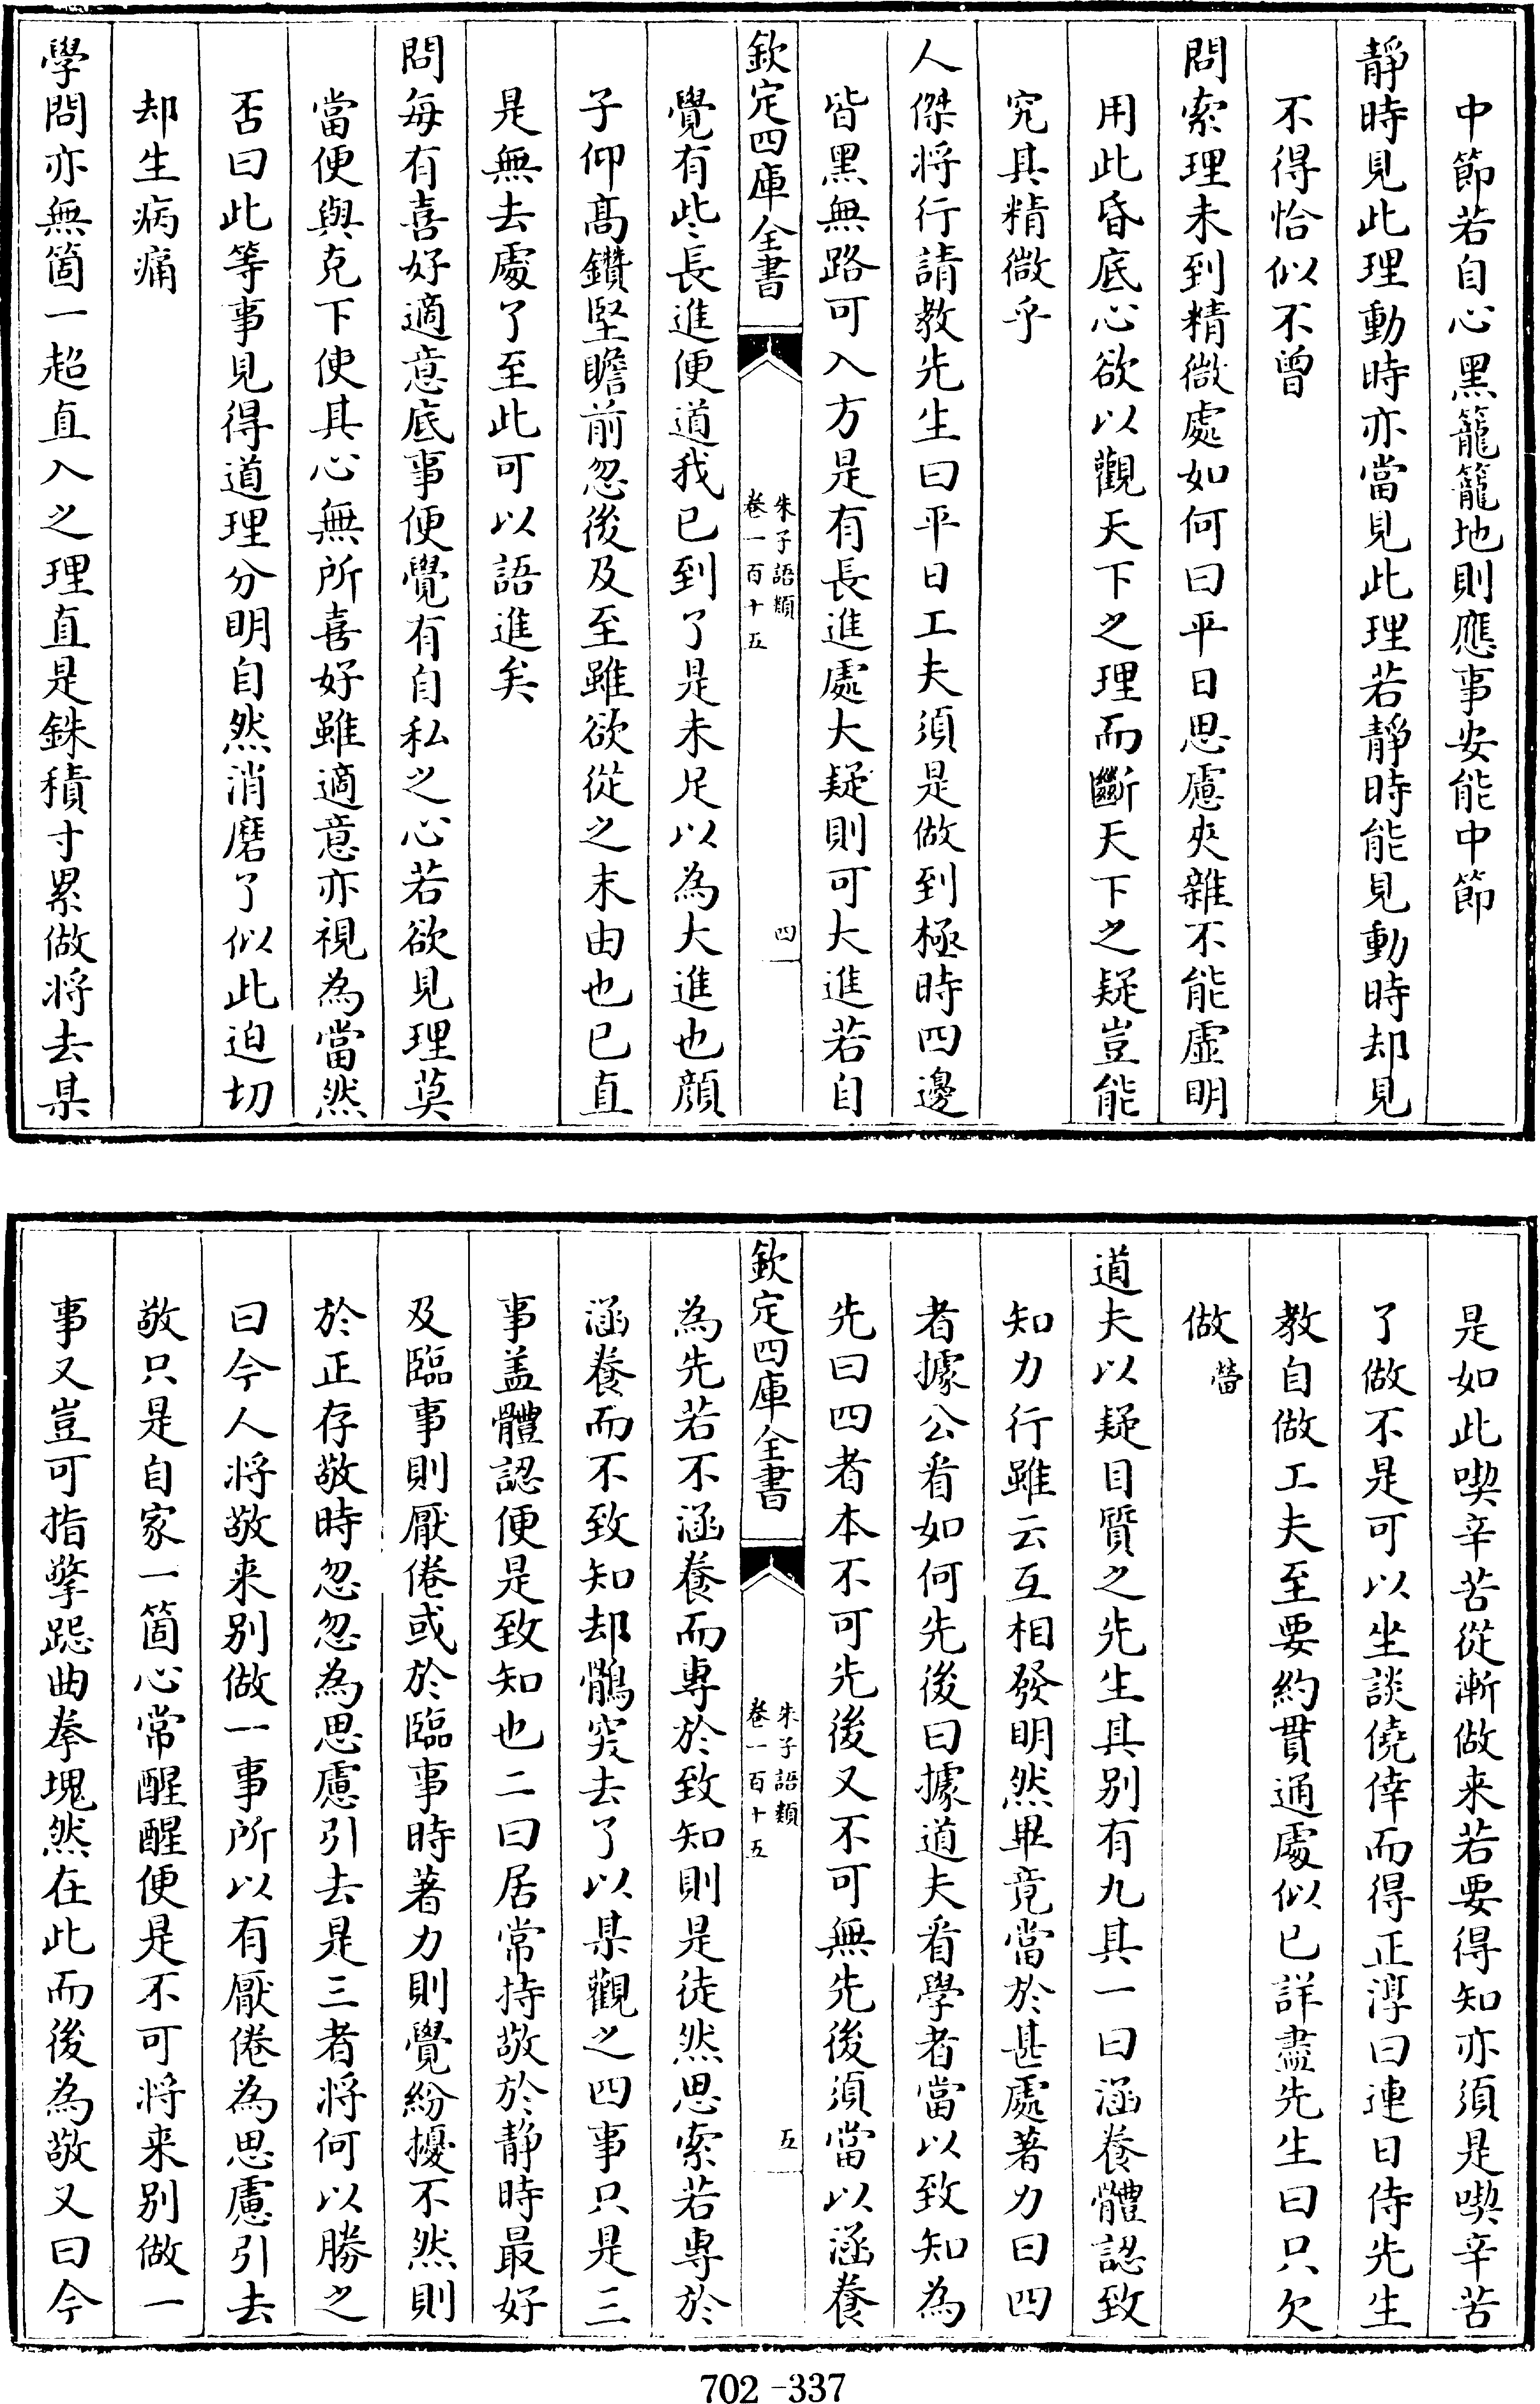 中節若自心黑籠籠地則應事安能中節
靜時見此理動時亦當見此理若靜時能見動時却見
不得恰似不曾
問索理未到精微處如何曰平日思慮夾雜不能虛明
用此昏底心欲以觀天下之理而斷天下之疑豈能
究其精微乎
人傑将行請教先生曰平日工夫須是做到極時四邊
皆黑無路可入方是有長進處大疑則可大進若自
欽定四庫全書
朱子語類
卷一百十五
四
覺有些長進便道我已到了是未足以為大進也顔
子仰髙鑽堅瞻前忽後及至雖欲從之末由也已直
是無去處了至此可以語進矣
問每有喜好適意底事便覺有自私之心若欲見理莫
當便與克下使其心無所喜好雖適意亦視為當然
否曰此等事見得道理分明自然消磨了似此迫切
却生病痛
學問亦無箇一超直入之理直是銖積寸累做将去某
是如此喫辛苦從漸做来若要得知亦須是喫辛苦
了做不是可以坐談僥倖而得正淳曰連日侍先生
教自做工夫至要約貫通處似已詳盡先生曰只欠
做㽦
道夫以疑目質之先生其别有九其一曰涵養體認致
知力行雖云互相發明然畢竟當於甚處著力曰四
者據公看如何先後曰據道夫看學者當以致知為
先曰四者本不可先後又不可無先後須當以涵養
欽定四庫全書
朱子語類
卷一百十五
五
為先若不涵養而專於致知則是徒然思索若專於
涵養而不致知却鶻突去了以某觀之四事只是三
事盖體認便是致知也二曰居常持敬於静時最好
及臨事則厭倦或於臨事時著力則覺紛擾不然則
於正存敬時忽忽為思慮引去是三者将何以勝之
曰今人将敬来别做一事所以有厭倦為思慮引去
敬只是自家一箇心常醒醒便是不可将来别做一
事又豈可指擎跽曲拳塊然在此而後為敬又曰今
702-337